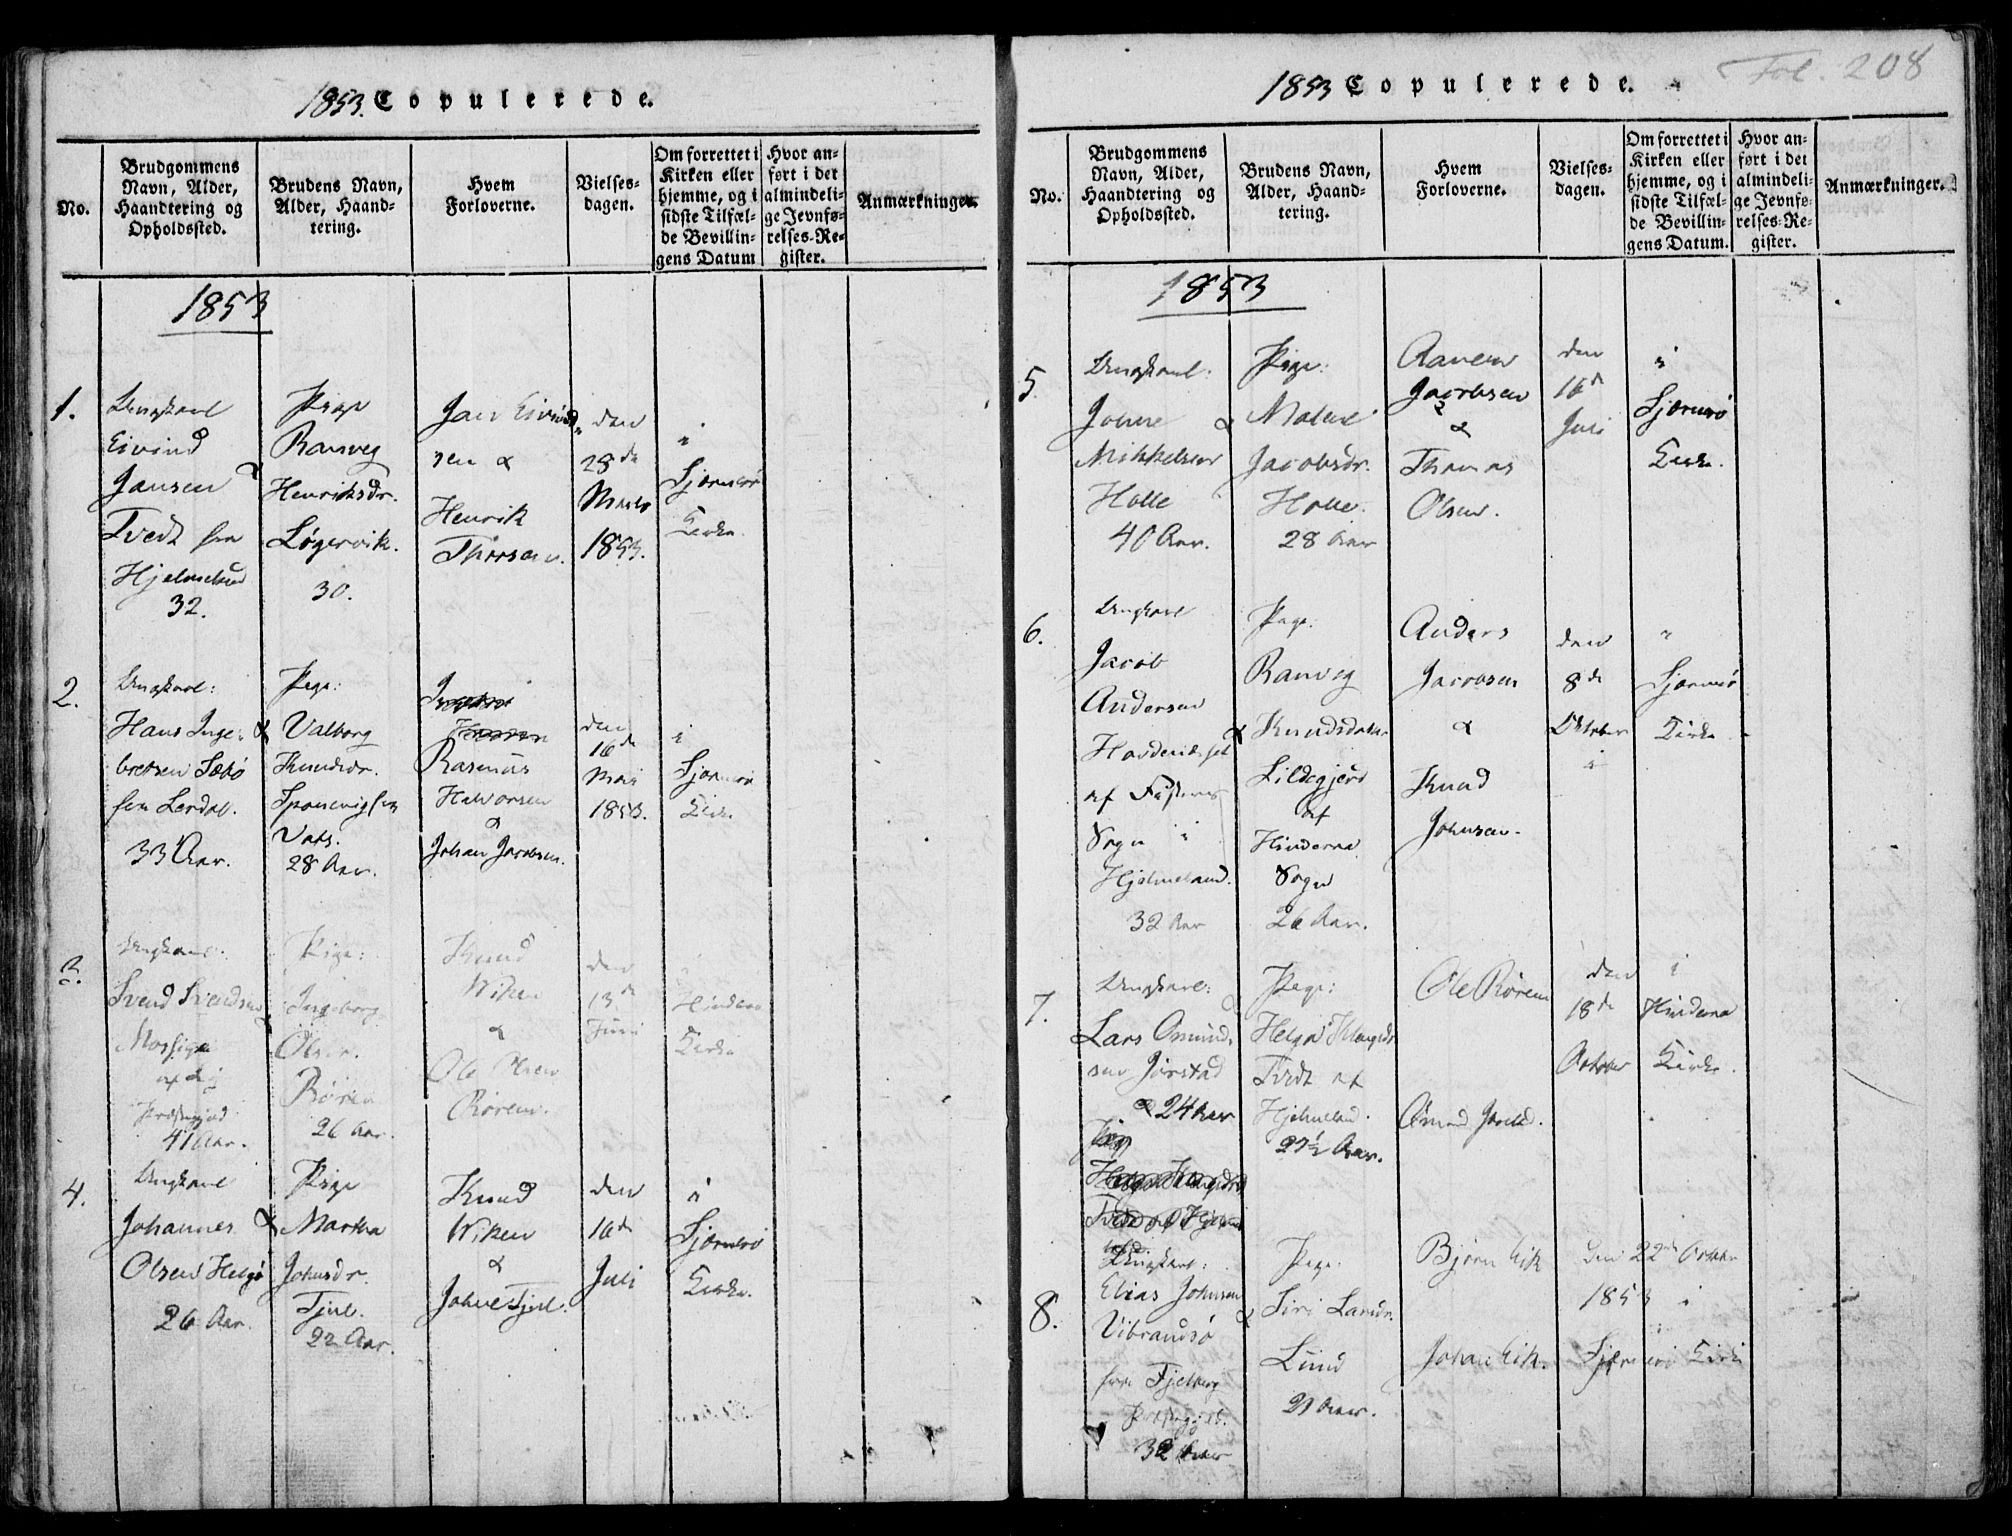 1853. Copulerede.
No.
Brudgommens Navn, Alder, Haandtering og Opholdssted.
Brudens Navn, Alder, Haandtering.
Hvem Forloverne.
Vielsesdagen.
Om forrettet i Kirken eller hjemme, og i sidste Tilfælde Bevillingens Datum
Hvor anført i det almindelige Jevnførelses-Register.
Anmærkninger.
1853
1.
Ungkarl
Eivind
Jansen
Tvedt fra
Hjelmeland
32.
&
Pige
Ranveg
Henriksdr.
Løgervik.
30.
Jan Eivind
sen &
Henrik
Thorsen.
den
28de
Marts
1853.
i
Sjernerø
Kirke.
2.
Ungkarl:
Hans Inge-
bretsen Sæbø
fra
33 Aar.
&
Pige:
Valborg
Knudsdr.
Vats.
28 Aar.
Rasmus
Halvorsen
&
Johan Jacobsen.
den
16de
Mai
1853.
i
Sjernerø
Kirke
3.
Ungkarl:
Svend Svendsen
Mossige
41 Aar.
Pige:
Ingeborg
Olsdr.
Rören
26 Aar.
Knud
Wiken
&
Ole Olsen
Rörem.
den
13de
Juni
i
Hinderaa
Kirke
4.
Ungkarl
Johannes
Olsen Helgø
26 Aar.
&
Pige
Martha
Johnsdr.
22 Aar.
Knud
Wiken
&
den
16de
Juli
i
Sjernerø
Kirke.
Fol. 208
1853 Copulerede.
No.
Brudgommens Navn, Alder, Haandtering og Opholdssted.
Brudens Navn, Alder, Haandtering.
Hvem Forloverne.
Vielsesdagen.
Om forrettet i Kirken eller hjemme, og i sidste Tilfælde Bevillingens Datum.
Hvor anført i det almindelige Jevnførelses-Register.
Anmærkninger.
1853
5.
Ungkarl:
Mikkelsen
Halle
40 Aar.
&
Pige:
Malene
Jacobsdr.
Halle.
28 Aar
Jacobsen
&
Thomas
Olsen.
den
16de
Juli
i
Sjernerø
Kirke.
6.
Ungkarl
Jacob
Andersen
Sogn i
Hjelmeland.
32 Aar
&
Pige:
Ranveg
Knudsdatter
af
Hinderaa
Sogn
26 Aar.
Anders
Jacobsen
&
Knud
Johnsen.
den
8de
Oktober
i
Sjernerø
Kirke
7.
Ungkarl:
Lars Omund-
sen Jörstad
& 24 Aar
Pige:
Helga
Tvedt af
Hjelmeland.
27½ Aar.
Ole Rörem
Omund Jörstad.
den
18de
October
i
Hinderaa
Kirke.
8.
Ungkarl:
Elias Johnsen
Vibrandsö
fra Fjelberg
Præstegjeld.
32 Aar
&
Pige:
Siri Larsdr.
Lund
Bjørn Eik
Johan Eik.
den 22de October
1853 i
Sjernerø Kirke